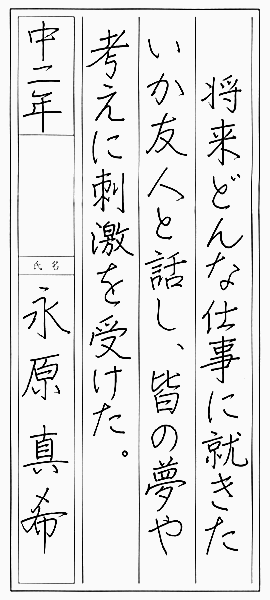 将来どんな仕事に就きた
いか友人と話し、皆の夢や
考えに刺激を受けた。
中二年
氏名
永原真希